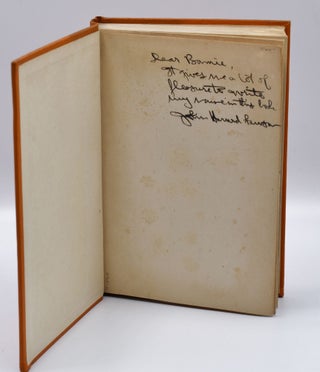 Dear Bonnie,
It gives me a lot of
pleasure to write
my name in this book
John Howard Lawson